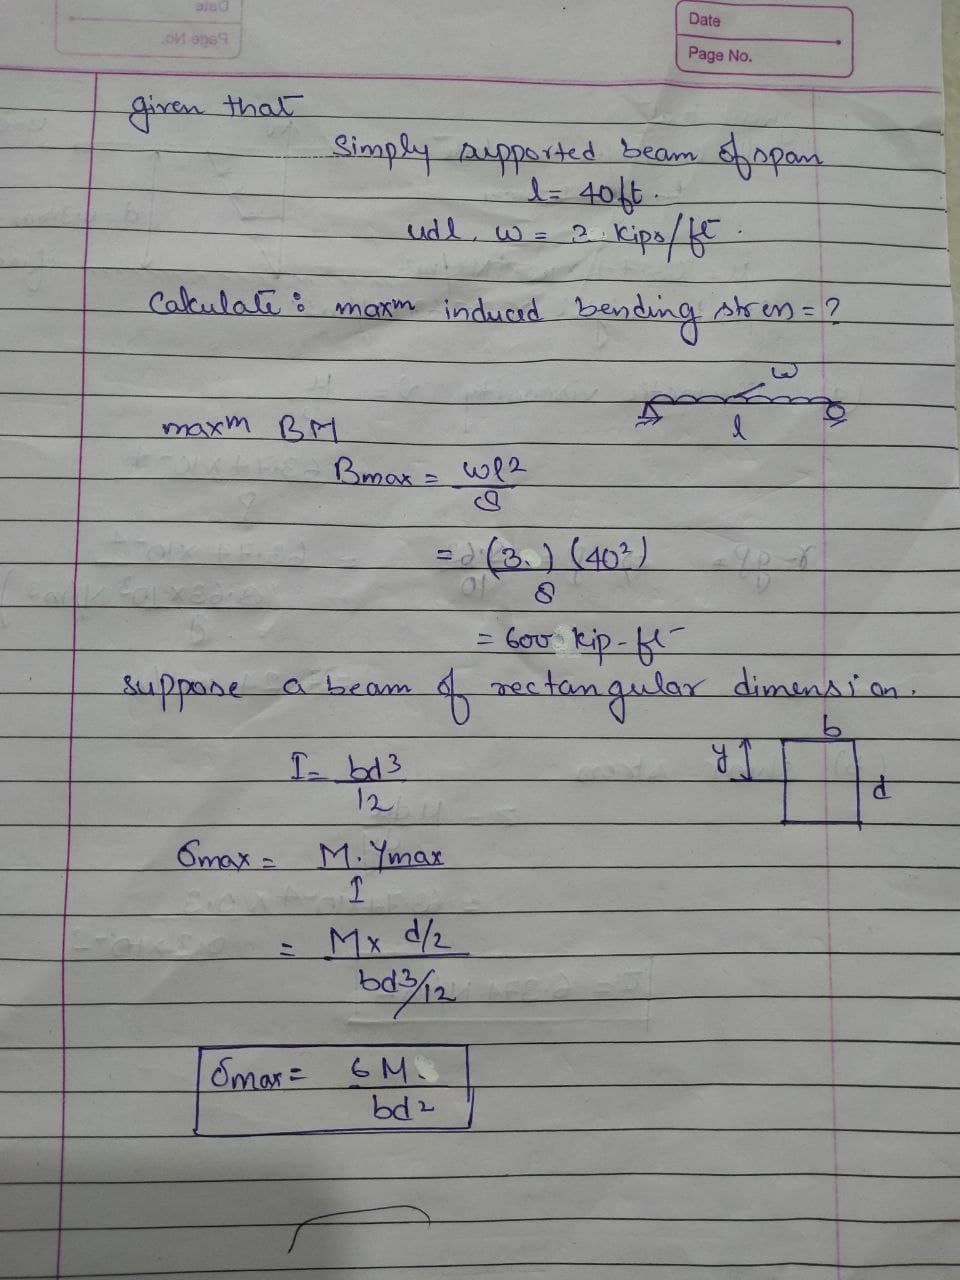 Date
Page No.
given that
Simply supported beam of span
l = 40ft.
udl, w = 3 kips/ft.
Calculate : maxm induced bending stress = ?
w
l
maxm BM
Bmax = wl2
8
= (3.) (40²)
8
= 600 kip-ft
suppose a beam of rectangular dimension.
b
y
d
I = bd3
12
σmax = M. Ymax
I
= Mx d/2
bd3/12
σmax = 6 M.
bd2